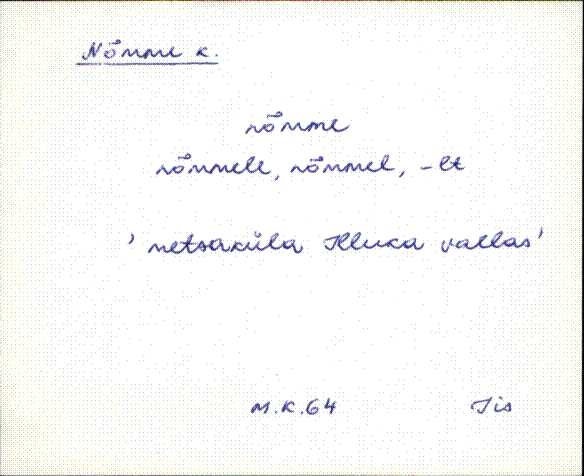 Nõmme k.
nõmme
nõmmele, nõmmel, -lt
'metsaküla Illuka vallas'
M.K.64 Iis